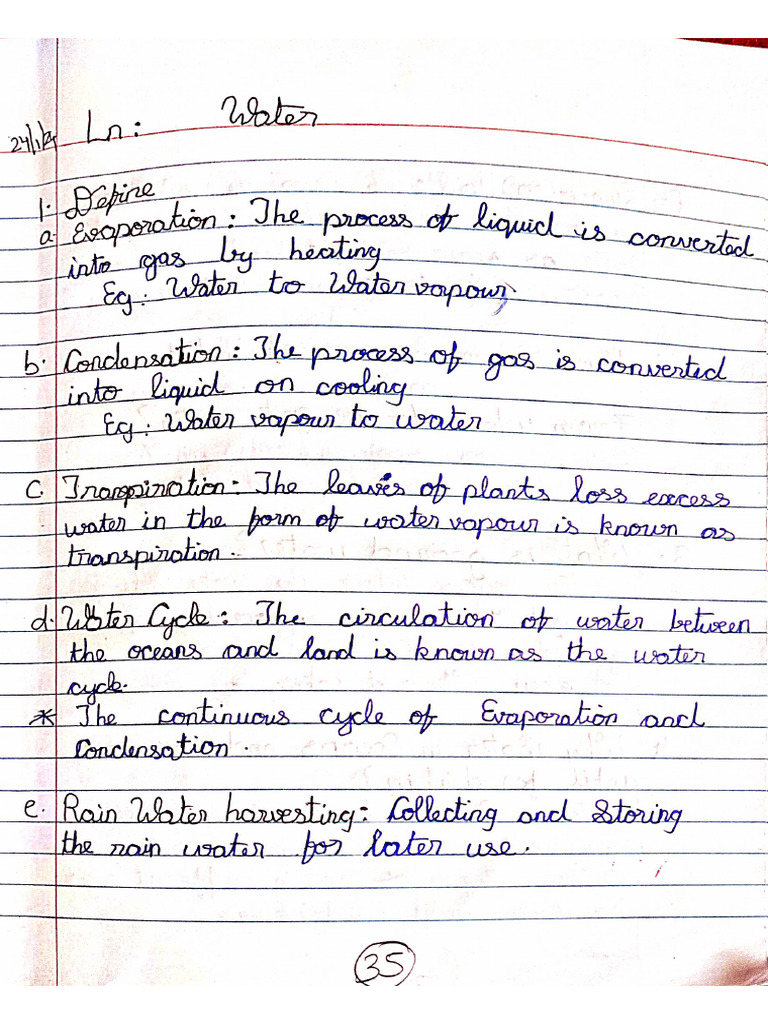 Ln: Water
1. Define
a. Evaporation: The process of liquid is converted
into gas by heating
Eg: Water to Water vapour
b. Condensation: The process of gas is converted
into liquid on cooling
Eg: Water vapour to water
c. Transpiration: The leaves of plants loss excess
water in the form of water vapour is known as
transpiration.
d. Water Cycle: The circulation of water between
the oceans and land is known as the water
cycle.
* The continuous cycle of Evaporation and
Condensation.
e. Rain Water harvesting: Collecting and Storing
the rain water for later use.
35